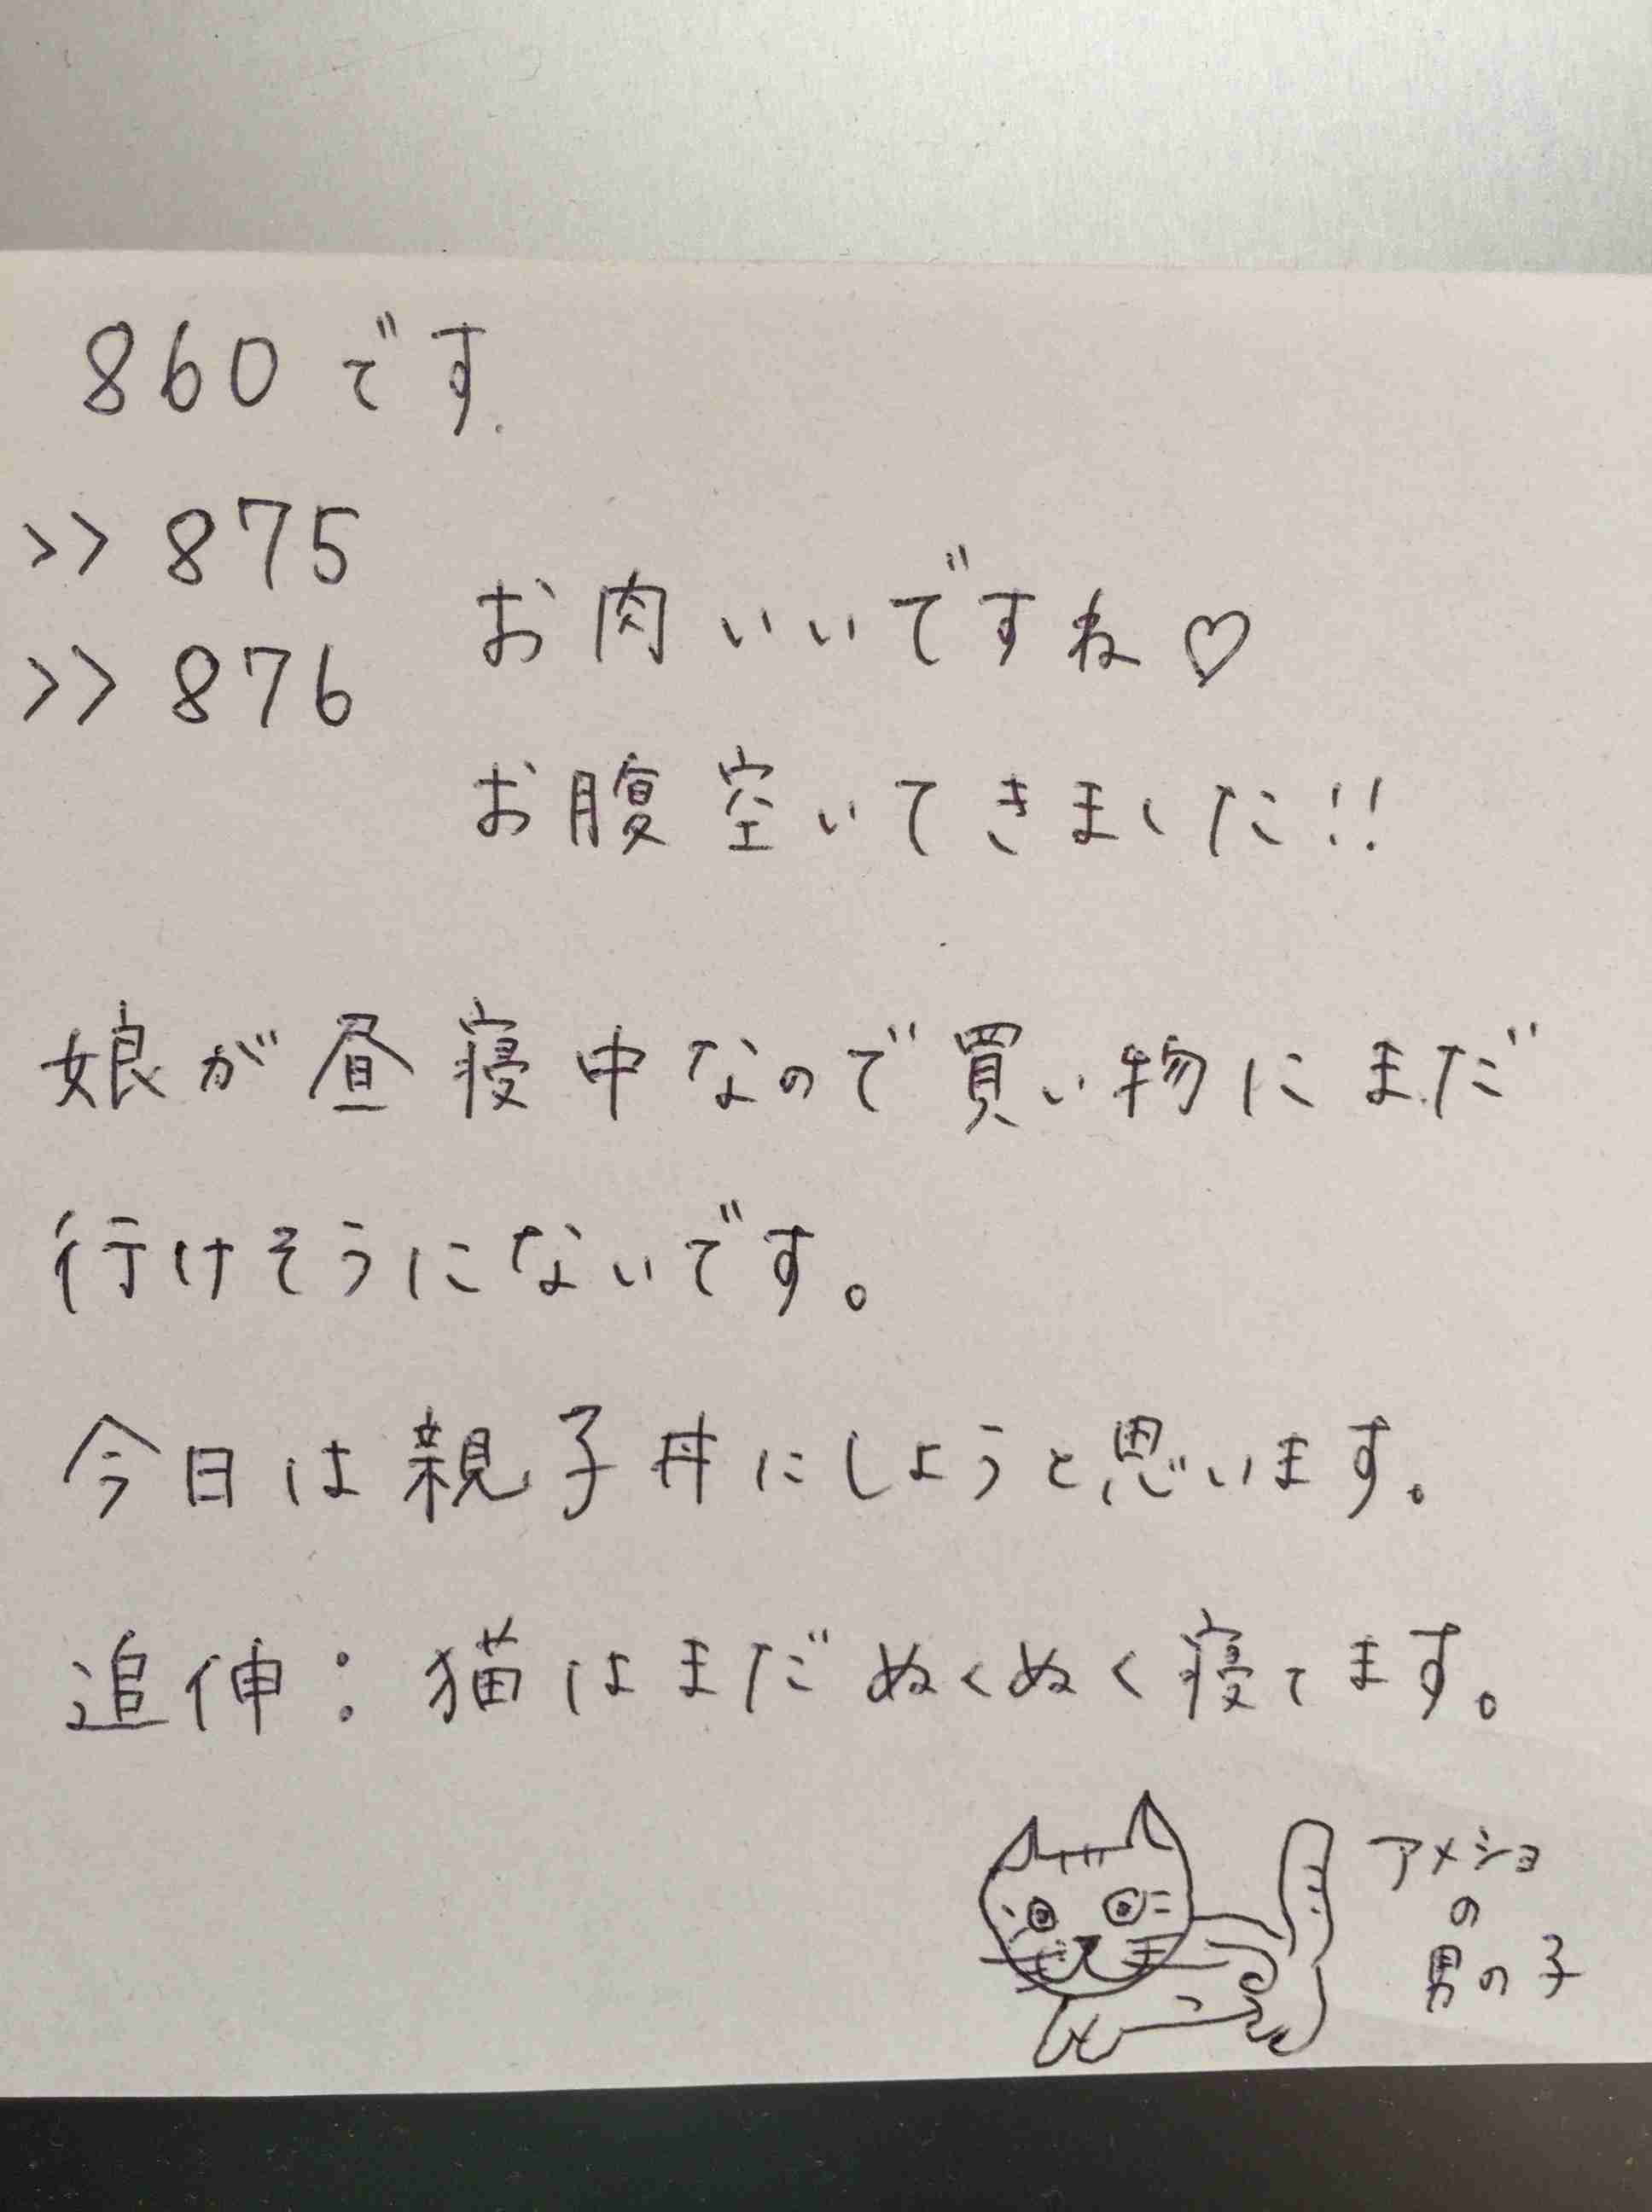 860です.
>>875
>>876
お肉いいですね♡
お腹空いてきました!!
娘が昼寝中なので買い物にまだ
行けそうにないです。
今日は親子丼にしようと思います。
追伸：猫はまだぬくぬく寝てます。
アメショ
の
男の子